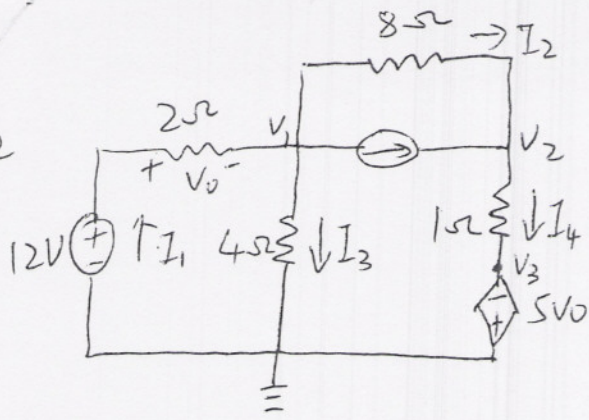 8Ω
→ I₂
2Ω
V₁
V₂
+ V₀ -
12V
+
-
↑ I₁
4Ω
↓ I₃
1Ω
↓ I₄
V₃
-
+
5V₀